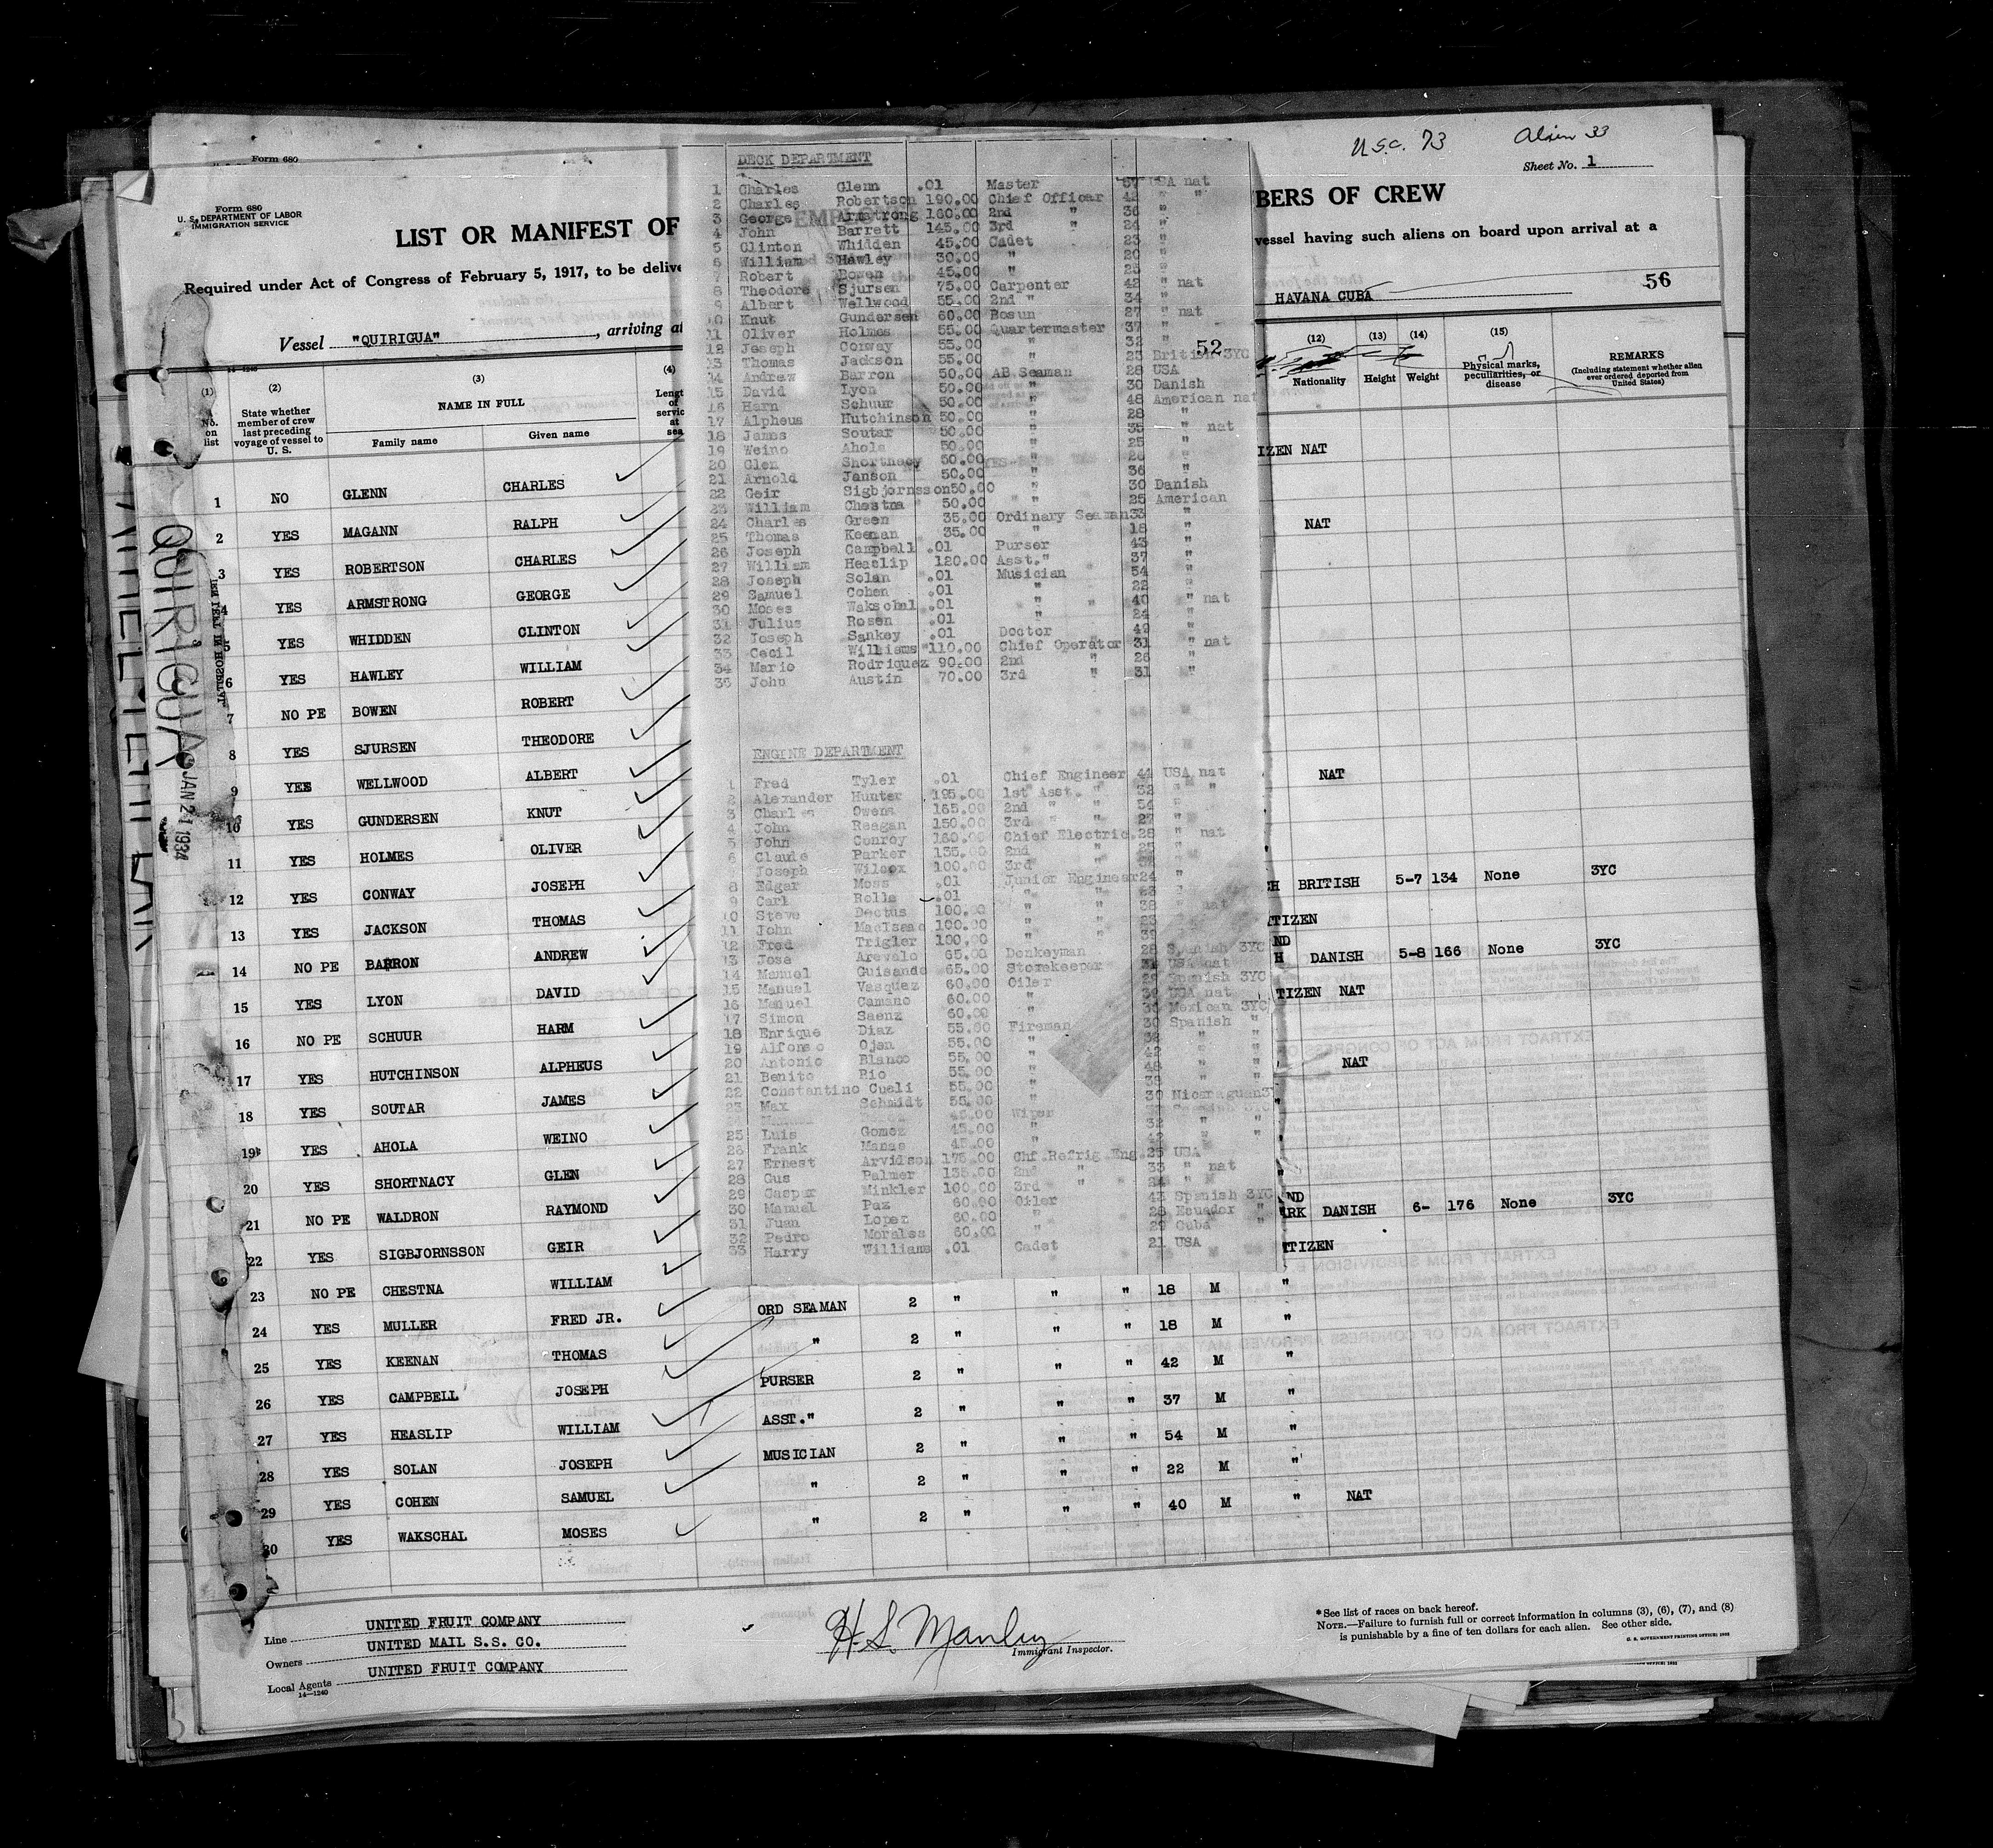 U.S.C. 73 Alien 33
Form 680
Sheet No. 1
Form 680
U. S. DEPARTMENT OF LABOR
IMMIGRATION SERVICE
LIST OR MANIFEST OF
BERS OF CREW
Required under Act of Congress of February 5, 1917, to be delive
vessel having such aliens on board upon arrival at a
Vessel "QUIRIGUA", arriving at
HAVANA CUBA
56
52
(1) No. on list
(2) State whether member of crew last preceding voyage of vessel to U. S.
(3) NAME IN FULL
Family name Given name
(4) Lengt of servic at sea
(12) Nationality
(13) Height
(14) Weight
(15) Physical marks, peculiarities, or disease
REMARKS
(Including statement whether alien ever ordered deported from United States)
1 NO GLENN CHARLES IZEN NAT
2 YES MAGANN RALPH
3 YES ROBERTSON CHARLES NAT
4 YES ARMSTRONG GEORGE
5 YES WHIDDEN CLINTON
6 YES HAWLEY WILLIAM
7 NO PE BOWEN ROBERT
8 YES SJURSEN THEODORE
9 YES WELLWOOD ALBERT
10 YES GUNDERSEN KNUT NAT
11 YES HOLMES OLIVER
12 YES CONWAY JOSEPH
13 YES JACKSON THOMAS H BRITISH 5-7 134 None 3YC
14 NO PE BARRON ANDREW TIZEN
15 YES LYON DAVID ND H DANISH 5-8 166 None 3YC
16 NO PE SCHUUR HARM TIZEN NAT
17 YES HUTCHINSON ALPHEUS
18 YES SOUTAR JAMES NAT
19 YES AHOLA WEINO "
20 YES SHORTNACY GLEN
21 NO PE WALDRON RAYMOND "
22 YES SIGBJORNSSON GEIR ND RK DANISH 6- 176 None 3YC
23 NO PE CHESTNA WILLIAM TIZEN
24 YES MULLER FRED JR. ORD SEAMAN 2 " " " 18 M "
25 YES KEENAN THOMAS " 2 " " " 18 M "
26 YES CAMPBELL JOSEPH PURSER 2 " " " 42 M "
27 YES HEASLIP WILLIAM ASST." 2 " " " 37 M "
28 YES SOLAN JOSEPH MUSICIAN 2 " " " 54 M "
29 YES COHEN SAMUEL " 2 " " " 22 M "
30 YES WAKSCHAL MOSES " 2 " " " 40 M " NAT
DECK DEPARTMENT
1 Charles Glenn .01 Master 57 USA nat
2 Charles Robertson 190.00 Chief Officer 42 " "
3 George Armstrong 160.00 2nd " 36 "
4 John Barrett 145.00 3rd " 24 "
5 Clinton Whidden 45.00 Cadet 23 "
6 William Hawley 30.00 " 20 "
7 Robert Bowen 45.00 " 25 "
8 Theodore Sjursen 75.00 Carpenter 42 " nat
9 Albert Wellwood 55.00 2nd " 34 "
10 Knut Gundersen 60.00 Bosun 27 " nat
11 Oliver Holmes 55.00 Quartermaster 37 "
12 Joseph Conway 55.00 " 32 "
13 Thomas Jackson 55.00 " 23 British 3YC
14 Andrew Barron 50.00 AB Seaman 28 USA
15 David Lyon 50.00 " 30 Danish
16 Harm Schuur 50.00 " 48 American nat
17 Alpheus Hutchinson 50.00 " 28 "
18 James Soutar 50.00 " 35 " nat
19 Weino Ahola 50.00 " 25 "
20 Glen Shortnacy 50.00 " 26 "
21 Arnold Janson 50.00 " 36 "
22 Geir Sigbjornsson 50.00 " 30 Danish
23 William Chestna 50.00 " 25 American
24 Charles Green 35.00 Ordinary Seaman 33 "
25 Thomas Keenan 35.00 " 18 "
26 Joseph Campbell .01 Purser 43 "
27 William Heaslip 120.00 Asst." 37 "
28 Joseph Solan .01 Musician 54 "
29 Samuel Cohen .01 " 22 "
30 Moses Wakschal .01 " 40 " nat
31 Julius Rosen .01 " 24 "
32 Joseph Sankey .01 Doctor 49 "
33 Cecil Williams 110.00 Chief Operator 31 " nat
34 Mario Rodriquez 90.00 2nd " 26 "
35 John Austin 70.00 3rd " 31 "
ENGINE DEPARTMENT
1 Fred Tyler .01 Chief Engineer 44 USA nat
2 Alexander Hunter 195.00 1st Asst. " 32 " "
3 Charles Owens 165.00 2nd " " 34 "
4 John Reagan 150.00 3rd " " 27 "
5 John Conroy 160.00 Chief Electric. 28 " nat
6 Claude Parker 135.00 2nd "
Joseph Wilcox 100.00 3rd "
8 Edgar Moss .01 Junior Engineer 24 "
9 Carl Rolls .01 " " 23 "
10 Steve Dectus 100.00 " " 38 " nat
11 John MacIsaac 100.00 " " 23
12 Fred Trigler 100.00 " " 39
13 Jose Arevalo 65.00 Donkeyman 28 Spanish 3YC
14 Manuel Guisande 65.00 Storekeeper USA nat
15 Manuel Vasquez 60.00 Oiler 29 Spanish 3YC
16 Manuel Camano 60.00 " USA nat
17 Simon Saenz 60.00 " Mexican 3YC
18 Enrique Diaz 55.00 Fireman 30 Spanish "
19 Alfonso Ojan 55.00 " 32 " "
20 Antonio Blanco 55.00 " 42 " "
21 Benito Rio 55.00 " 48 " "
22 Constantino Cueli 55.00 " 38 " "
23 Max Schmidt 55.00 " 30 Nicaraguan
45.00 Wiper
25 Luis Gomez 45.00 " 32 " "
26 Frank Manas 45.00 " 42 " "
27 Ernest Arvidson 175.00 Chf.Refrig.Eng. 25 USA
28 Gus Palmer 135.00 2nd " " 33 " nat
29 Caspar Winkler 100.00 3rd " 24 "
30 Manuel Paz 60.00 Oiler 43 Spanish 3YC
31 Juan Lopez 60.00 " 28 Ecuador "
32 Pedro Morales 60.00 " 29 Cuba "
33 Harry Williams .01 Cadet 21 USA
QUIRIGUA
JAN 21 1934
Line UNITED FRUIT COMPANY
Owners UNITED MAIL S.S. CO.
Local Agents UNITED FRUIT COMPANY
14-1240
H. S. Manley
Immigrant Inspector.
* See list of races on back hereof.
NOTE.—Failure to furnish full or correct information in columns (3), (6), (7), and (8)
is punishable by a fine of ten dollars for each alien. See other side.
U. S. GOVERNMENT PRINTING OFFICE: